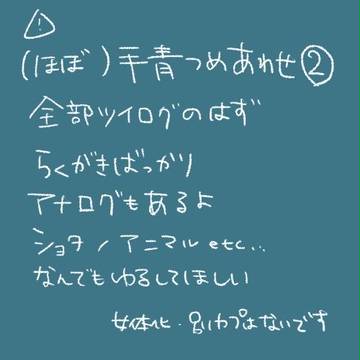 (ほぼ)手青つめあわせ②
全部ツイログのはず
らくがきばっかり
アナログもあるよ
ショタ/アニマル etc...
なんでもゆるしてほしい
女体化・呂いカプはないです